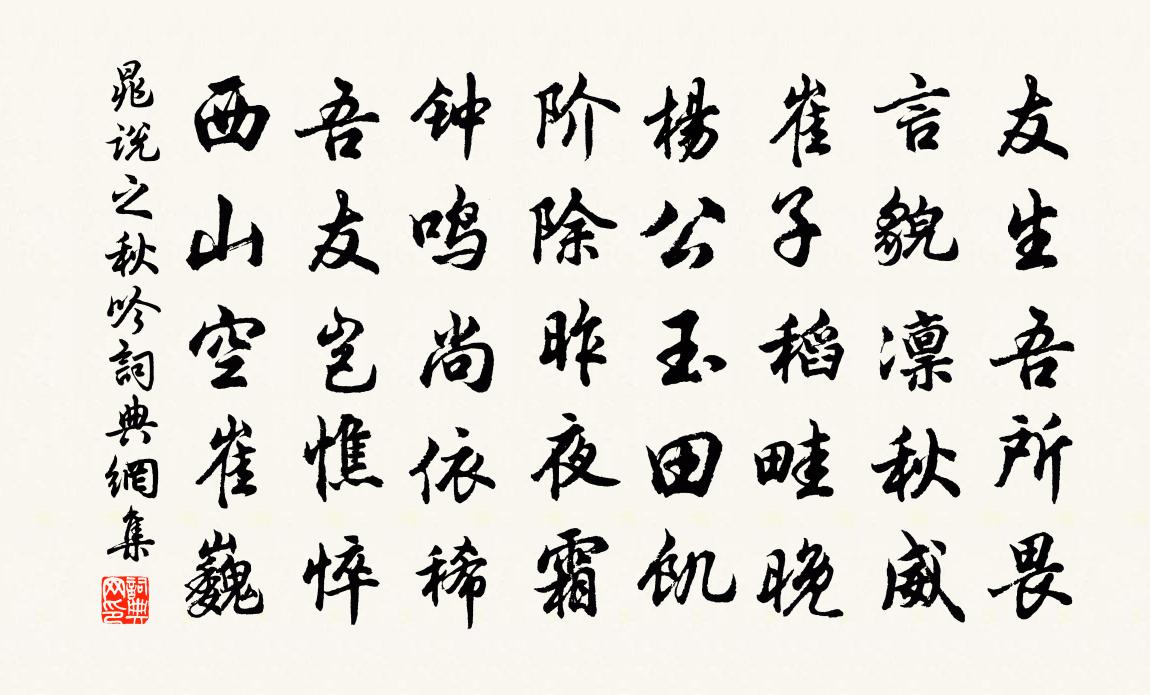 友生吾所畏
言貌凛秋威
崔子稻畦晚
楊公玉田飢
阶除昨夜霜
钟鸣尚依稀
吾友岂憔悴
西山空崔巍
晁說之秋吟詞典網集
詞典網印